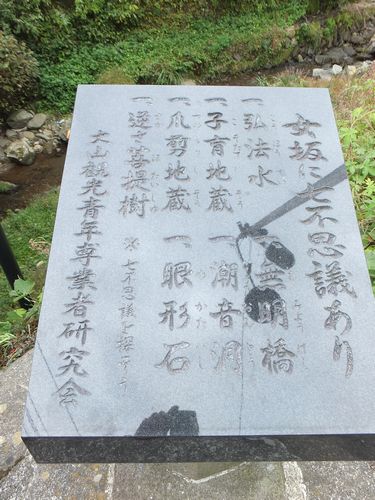 女坂に七不思議あり
一、弘法水 一、無明橋
一、子育地蔵 一、潮音洞
一、爪剪地蔵 一、眼形石
一、逆さ菩提樹 ※七不思議を探そう
大山観光青年専業者研究会